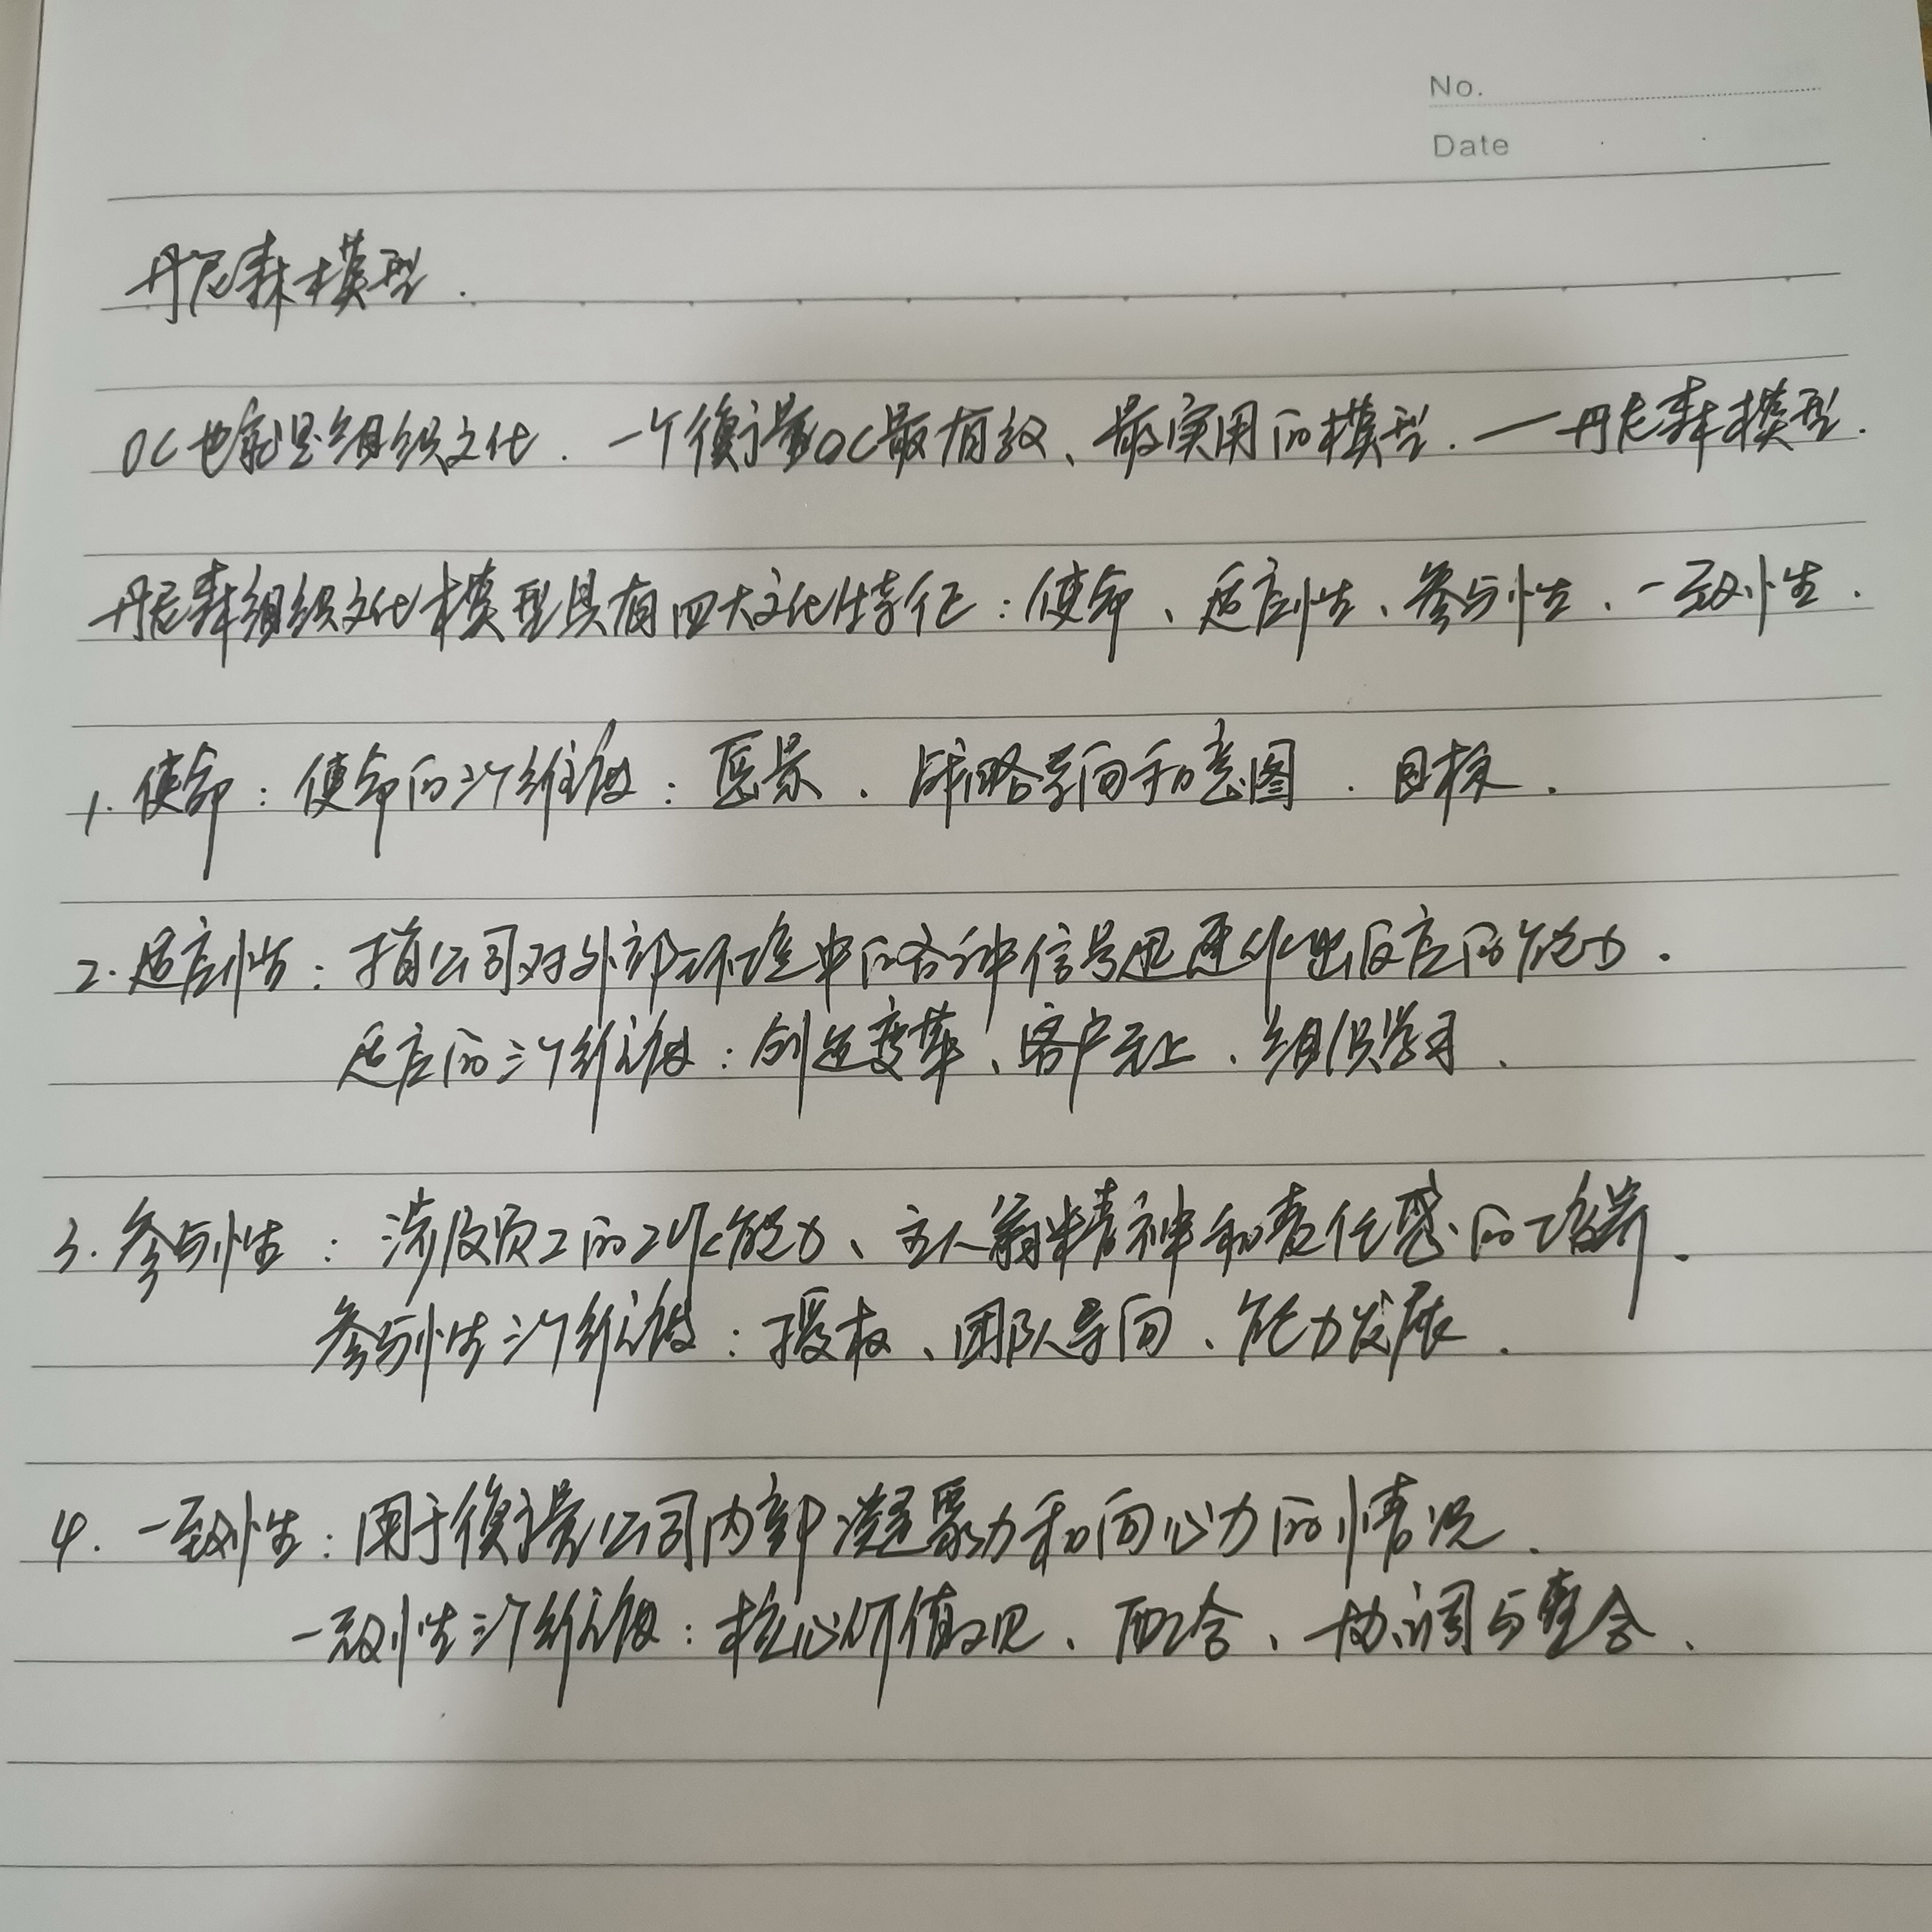 No.
Date
丹尼森模型.
OC也就是组织文化.一个衡量OC最有效、最实用的模型.—丹尼森模型.
丹尼森组织文化模型具有四大文化特征:使命、适应性、参与性、一致性.
1.使命:使命的三个维度:愿景、战略导向和意图、目标.
2.适应性:指公司对外部环境中的各种信号迅速作出反应的能力.
适应的三个维度:创造变革、客户至上、组织学习.
3.参与性:涉及员工的工作能力、主人翁精神和责任感的培养.
参与性三个维度:授权、团队导向、能力发展.
4.一致性:用于衡量公司内部凝聚力和向心力的情况.
一致性三个维度:核心价值观、配合、协调与整合、